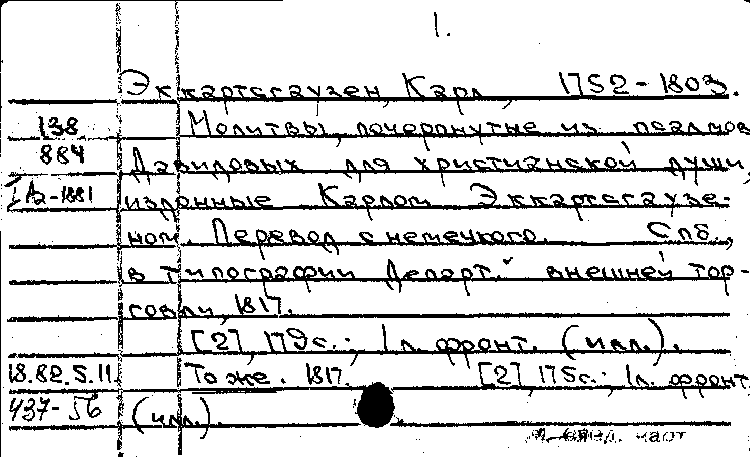 1.
Эккартсгаузен, Карл, 1752-1803.
138 Молитвы, почерпнутые из псалмов
884 Давидовых для христианской души,
IA2-1881 изданные Карлом Эккартсгаузе-
ном. Перевод с немецкого. Спб.,
в типографии Департ. внешней тор-
говли, 1817.
[2], 179 с.; 1 л. фронт. (илл.).
18.82.5.11. То же. 1817. [2], 175 с.; 1 л. фронт
437-56 (илл.).